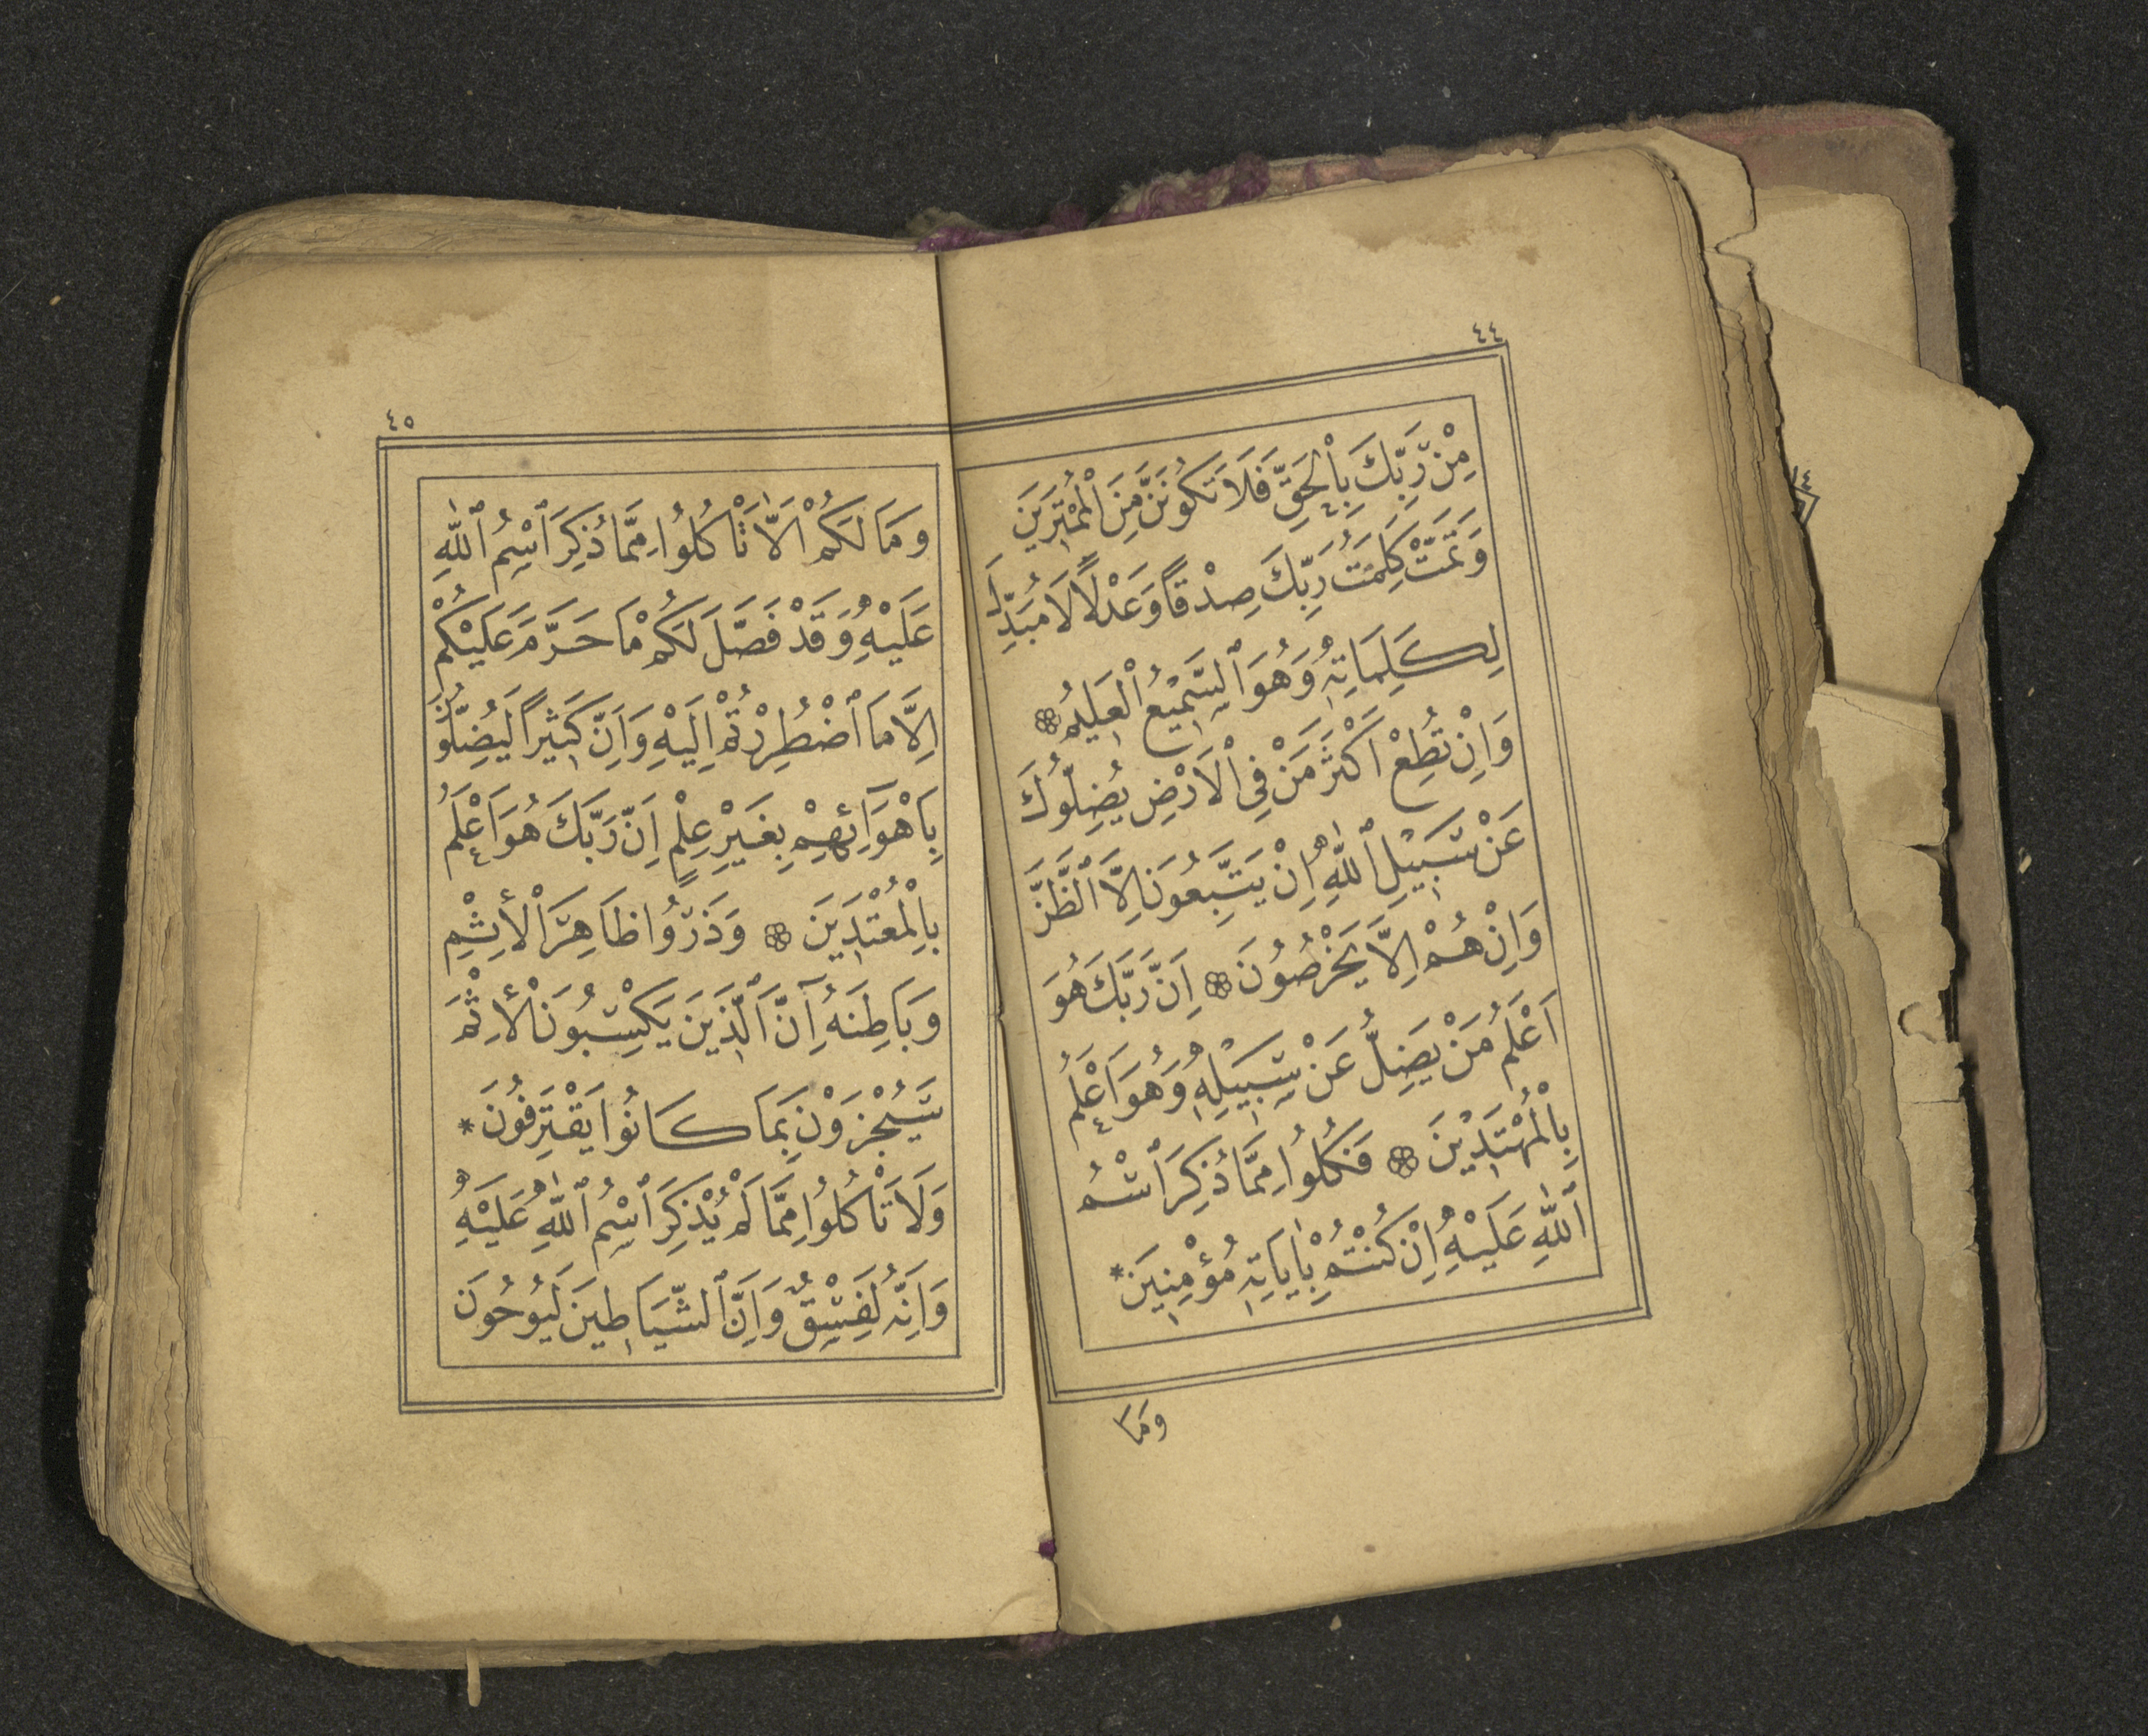 ٤٤
مِنْ رَبِّكَ بِالْحَقِّ فَلَا تَكُونَنَّ مِنَ الْمُمْتَرِينَ
وَتَمَّتْ كَلِمَتُ رَبِّكَ صِدْقًا وَعَدْلًا لَا مُبَدِّلَ
لِكَلِمَاتِهِ وَهُوَ السَّمِيعُ الْعَلِيمُ ۞
وَاِنْ تُطِعْ اَكْثَرَ مَنْ فِى الْاَرْضِ يُضِلُّوكَ
عَنْ سَبِيلِ اللّٰهِ اِنْ يَتَّبِعُونَ اِلَّا الظَّنَّ
وَاِنْ هُمْ اِلَّا يَخْرُصُونَ ۞ اِنَّ رَبَّكَ هُوَ
اَعْلَمُ مَنْ يَضِلُّ عَنْ سَبِيلِهِ وَهُوَ اَعْلَمُ
بِالْمُهْتَدِينَ ۞ فَكُلُوا مِمَّا ذُكِرَ اسْمُ
اللّٰهِ عَلَيْهِ اِنْ كُنْتُمْ بِاٰيَاتِهِ مُؤْمِنِينَ *
وَمَا
٤٥
وَمَا لَكُمْ اَلَّا تَأْكُلُوا مِمَّا ذُكِرَ اسْمُ اللّٰهِ
عَلَيْهِ وَقَدْ فَصَّلَ لَكُمْ مَا حَرَّمَ عَلَيْكُمْ
اِلَّا مَا اضْطُرِرْتُمْ اِلَيْهِ وَاِنَّ كَثِيرًا لَيُضِلُّونَ
بِاَهْوَآئِهِمْ بِغَيْرِ عِلْمٍ اِنَّ رَبَّكَ هُوَ اَعْلَمُ
بِالْمُعْتَدِينَ ۞ وَذَرُوا ظَاهِرَ الْاِثْمِ
وَبَاطِنَهُ اِنَّ الَّذِينَ يَكْسِبُونَ الْاِثْمَ
سَيُجْزَوْنَ بِمَا كَانُوا يَقْتَرِفُونَ *
وَلَا تَأْكُلُوا مِمَّا لَمْ يُذْكَرِ اسْمُ اللّٰهِ عَلَيْهِ
وَاِنَّهُ لَفِسْقٌ وَاِنَّ الشَّيَاطِينَ لَيُوحُونَ